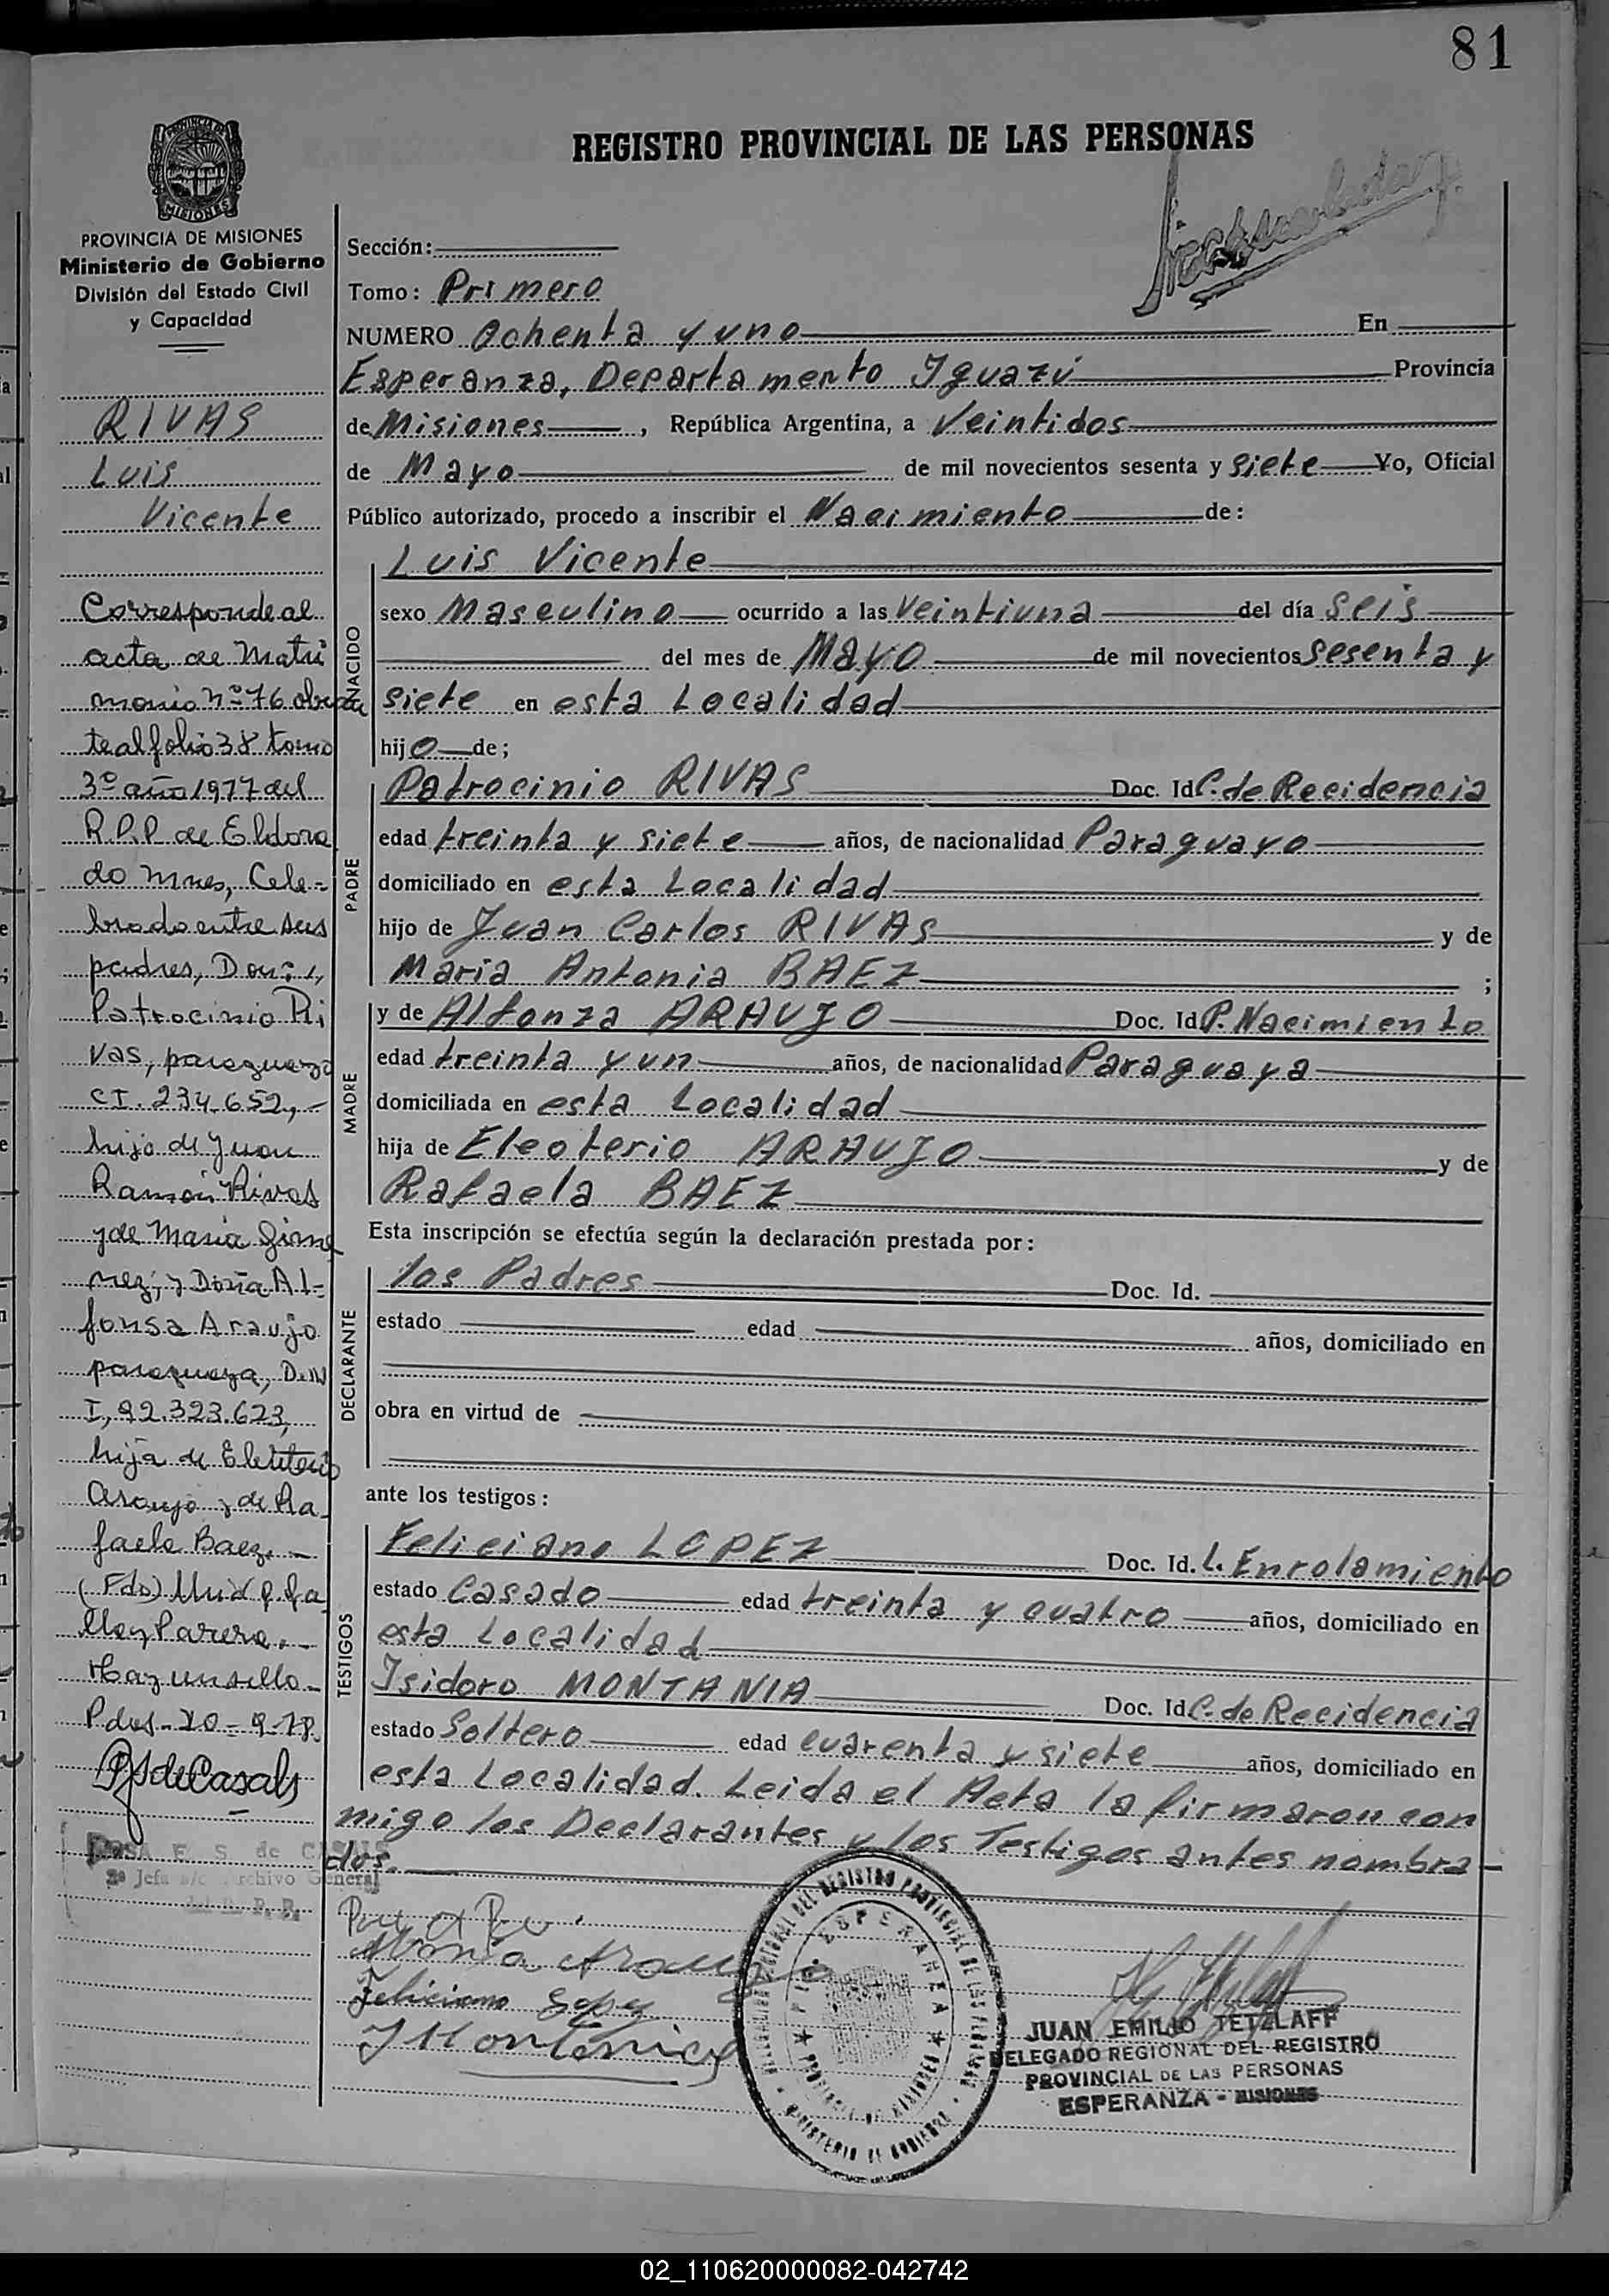 81
REGISTRO PROVINCIAL DE LAS PERSONAS
PROVINCIA DE MISIONES
Ministerio de Gobierno
División del Estado Civil
y Capacidad
RIVAS
Luis
Vicente
Corresponde al
acta de Matri
monio nº 76 obran
te al folio 38 tomo
3º año 1977 del
R.P.P. de Eldora
do Mnes, Cele-
brado entre sus
padres, Don:
Patrocinio Ri
vas, paraguayo
CI. 234.652,-
hijo de Juan
Ramón Rivas
y de Maria Gime
nez; y Doña Al-
fonsa Araujo
paraguaya, D.N
I, 92.323.623,
hija de Eleuterio
Araujo y de Ra
faela Baez.-
(Fdo)
Parera.-
Hay un sello-
Pdas-20-9-78.
de Casals
ROSA E. S. de CASALS
2ª Jefa a/c Archivo General
del R. P. P.
Sección:
Tomo: Primero
NUMERO Ochenta y uno En
Esperanza, Departamento Iguazú Provincia
de Misiones, República Argentina, a Veintidos
de Mayo de mil novecientos sesenta y siete Yo, Oficial
Público autorizado, procedo a inscribir el Nacimiento de:
NACIDO
Luis Vicente
sexo Masculino ocurrido a las Veintiuna del día Seis
del mes de Mayo de mil novecientos Sesenta y
siete en esta Localidad
hijo de;
PADRE
Patrocinio RIVAS Doc. Id C. de Recidencia
edad treinta y siete años, de nacionalidad Paraguayo
domiciliado en esta Localidad
hijo de Juan Carlos RIVAS y de
Maria Antonia BAEZ ;
MADRE
y de Alfonza ARAUJO Doc. Id P. Nacimiento
edad treinta y un años, de nacionalidad Paraguaya
domiciliada en esta Localidad
hija de Eleoterio ARAUJO y de
Rafaela BAEZ
Esta inscripción se efectúa según la declaración prestada por:
DECLARANTE
los Padres Doc. Id.
estado edad años, domiciliado en
obra en virtud de
ante los testigos:
TESTIGOS
Feliciano LOPEZ Doc. Id. L. Enrolamiento
estado Casado edad treinta y cuatro años, domiciliado en
esta Localidad
Isidoro MONTANIA Doc. Id C. de Recidencia
estado Soltero edad cuarenta y siete años, domiciliado en
esta Localidad. Leida el Acta la firmaron con
migo los Declarantes y los Testigos antes nombra-
dos.
Araujo
Feliciano Lopez
I Montania
ESPERANZA
PROVINCIA DE MISIONES
MINISTERIO DE GOBIERNO
JUAN EMILIO TETZLAFF
DELEGADO REGIONAL DEL REGISTRO
PROVINCIAL DE LAS PERSONAS
ESPERANZA - MISIONES
02_110620000082-042742